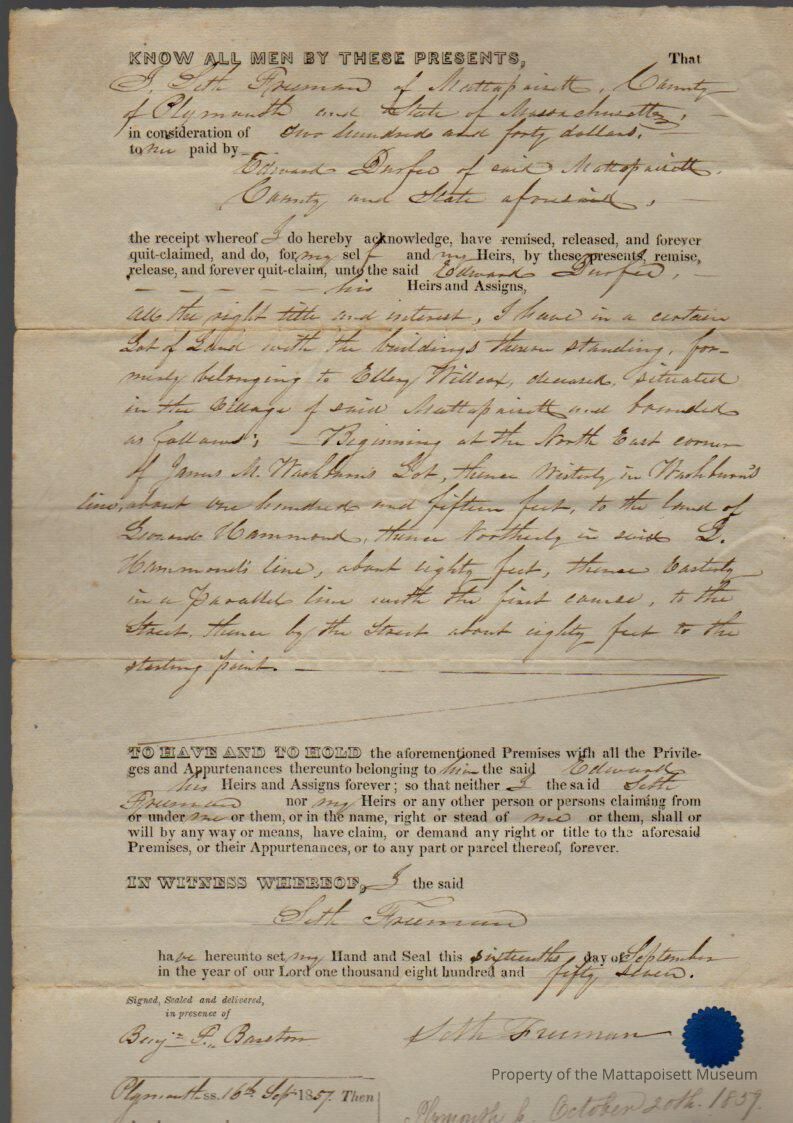 KNOW ALL MEN BY THESE PRESENTS, That
I, Seth Freeman of Mattapoisett, County
of Plymouth and State of Massachusetts,
in consideration of two hundred and forty dollars,
to me paid by
Edward Durfee of said Mattapoisett,
County and State aforesaid,
the receipt whereof I do hereby acknowledge, have remised, released, and forever
quit-claimed, and do, for my self and my Heirs, by these presents, remise,
release, and forever quit-claim, unto the said Edward Durfee,
his Heirs and Assigns,
all the right title and interest, I have in a certain
Lot of Land with the buildings thereon standing, for-
merly belonging to Ellery Willcox, deceased, situated
in the Village of said Mattapoisett and bounded
as follows; Beginning at the North East corner
of James M. Washburn's Lot, thence Westerly in Washburn's
line, about one hundred and fifteen feet, to the land of
Leonard Hammond, thence Northerly in said L.
Hammond's line, about eighty feet, thence Easterly
in a Parallel line with the first course, to the
Street, thence by the Street about eighty feet to the
starting point.
TO HAVE AND TO HOLD the aforementioned Premises with all the Privile-
ges and Appurtenances thereunto belonging to him the said Edward
his Heirs and Assigns forever; so that neither I the said Seth
Freeman nor my Heirs or any other person or persons claiming from
or under me or them, or in the name, right or stead of me or them, shall or
will by any way or means, have claim, or demand any right or title to the aforesaid
Premises, or their Appurtenances, or to any part or parcel thereof, forever.
IN WITNESS WHEREOF, I the said
Seth Freeman
have hereunto set my Hand and Seal this sixteenth day of September
in the year of our Lord one thousand eight hundred and fifty seven.
Signed, Sealed and delivered,
in presence of
Benj. F. Barstow
Seth Freeman
Property of the Mattapoisett Museum
Plymouth ss. 16th Sept 1857. Then
Plymouth October 20th. 1859.